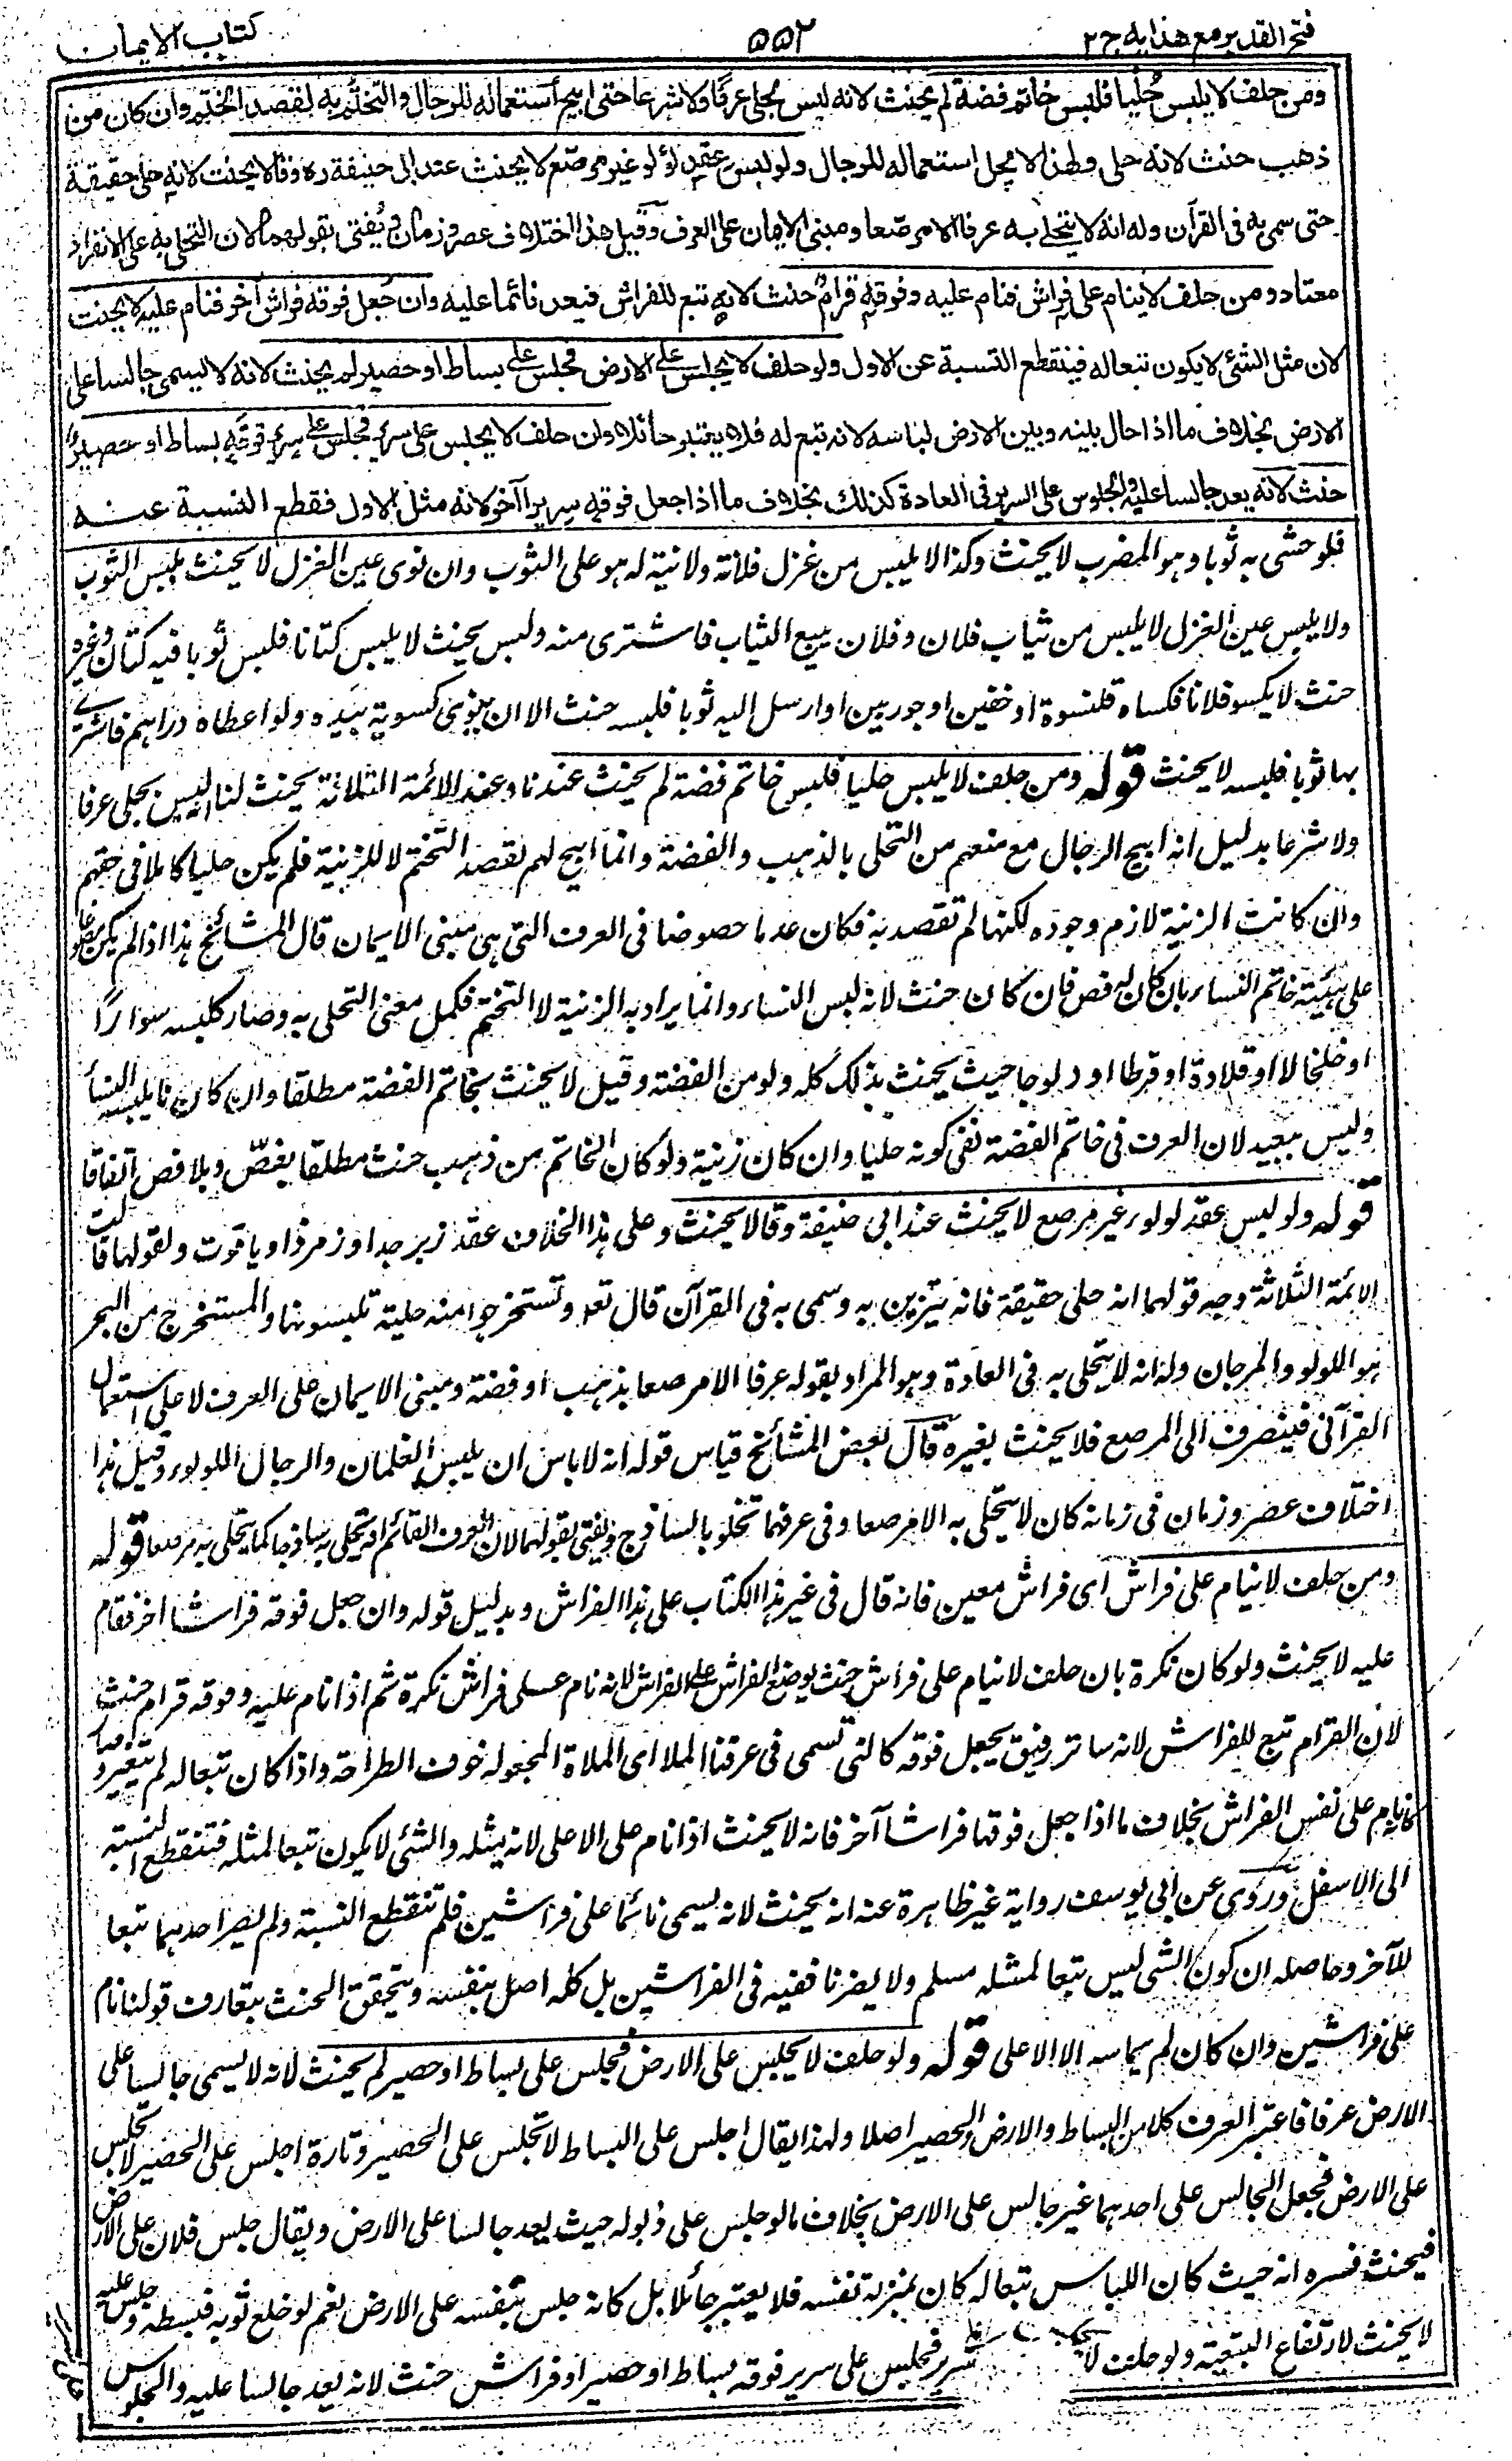 فتح القدير مع هدايه ج ٢
٥٥٢
كتاب الايمان
ومن حلف لا يلبس حُليا فلبس خاتم فضة لم يحنث لانه ليس بحلي عرفًا ولا شرعا حتى ابيح استعماله للرجال والتختم به لقصد الختم وان كان من
ذهب حنث لانه حلى ولهذا لا يحل استعماله للرجال ولو لبس عقد لؤلؤ غير مرصّع لا يحنث عند ابى حنيفة ره وقالا يحنث لانه حلى حقيقة
حتى سمى به فى القرآن وله انه لا يتحلى به عرفا الا مرصّعا ومبنى الايمان على العرف وقيل هذا اختلاف عصر وزمان ويُفتى بقولهما لان التحلى به على الانفراد
معتاد ومن حلف لا ينام على فراش فنام عليه وفوقه قرام حنث لانه تبع للفراش فيعد نائما عليه وان جُعل فوقه فراش آخر فنام عليه لا يحنث
لان مثل الشئ لا يكون تبعا له فينقطع النسبة عن الاول ولو حلف لا يجلس على الارض فجلس على بساط او حصير لم يحنث لانه لا يسمى جالسا على
الارض بخلاف ما اذا حال بينه وبين الارض لباسه لانه تبع له فلا يعتبر حائلا وان حلف لا يجلس على سرير فجلس على سرير فوقه بساط او حصير
حنث لانه يعد جالسا عليه والجلوس على السرير فى العادة كذلك بخلاف ما اذا جعل فوقه سريرا آخر لانه مثل الاول فقطع النسبة عنه
فلو حشى به ثوبا وهو المضرب لا يحنث وكذا لا يلبس من غزل فلانة ولا نية له هو على الثوب وان نوى عين الغزل لا يحنث بلبس الثوب
ولا يلبس عين الغزل لا يلبس من ثياب فلان وفلان يبيع الثياب فاشترى منه ولبس يحنث لا يلبس كتانا فلبس ثوبا فيه كتان وغيره
حنث لا يكسو فلانا فكساه قلنسوة او خفين او جوربين او ارسل اليه ثوبا فلبسه حنث الا ان ينوى كسوته بيده ولو اعطاه دراهم فاشترى
بها ثوبا فلبسه لا يحنث قوله ومن حلف لا يلبس حليا فلبس خاتم فضة لم يحنث عندنا وعند الائمة الثلاثة يحنث لنا انه ليس بحلى عرفا
ولا شرعا بدليل انه ابيح الرجال مع منعهم من التحلى بالذهب والفضة وانما ابيح لهم لقصد التختم لا للزينة فلم يكن حليا كاملا فى حقهم
وان كانت الزينة لازم وجوده لكنها لم تقصد به فكان عدما خصوصا فى العرف التى هى مبنى الايمان قال المشائخ هذا اذا لم يكن مصوغا
على هيئة خاتم النساء بان كان له فص فان كان حنث لانه لبس النساء وانما يراد به الزينة لا التختم فكمل معنى التحلى به وصار كلبسه سوارًا
او خلخالا او قلادة او قرطا او دلوجا حيث يحنث بذلك كله ولو من الفضة وقيل لا يحنث بخاتم الفضة مطلقا وان كان مما يلبسه النساء
وليس ببعيد لان العرف فى خاتم الفضة نفى كونه حليا وان كان زينة ولو كان الخاتم من ذهب حنث مطلقا بفصّ وبلا فص اتفاقا
قوله ولو لبس عقد لولو غير مرصع لا يحنث عند ابى حنيفة وقالا يحنث وعلى هذا الخلاف عقد زبرجد او زمرد او ياقوت ولقولهما قالت
الائمة الثلاثة وجه قولهما انه حلى حقيقة فانه يتزين به وسمى به فى القرآن قال تعه وتستخرجوا منه حلية تلبسونها والمستخرج من البحر
هو اللولو والمرجان وله انه لا يتحلى به فى العادة وهو المراد بقوله عرفا الا مرصعا بذهب او فضة ومبنى الايمان على العرف لا على استعمال
القرآنى فينصرف الى المرصع فلا يحنث بغيره قال بعض المشائخ قياس قوله انه لا باس ان يلبس الغلمان والرجال اللولوء وقيل هذا
اختلاف عصر وزمان فى زمانه كان لا يتحلى به الا مرصعا وفى عرفهما تحلو بالساذج ويفتى بقولهما لان العرف القائم انه يتحلى به ساذجا كما يتحلى به مرصعا قوله
ومن حلف لا ينام على فراش اى فراش معين فانه قال فى غير هذا الكتاب على هذا الفراش وبدليل قوله وان جعل فوقه فراشا آخر فنام
عليه لا يحنث ولو كان نكرة بان حلف لا ينام على فراش حنث بوضع الفراش على الفراش لانه نام على فراش نكرة ثم اذا نام عليه وفوقه قرام حنث
لان القرام تبع للفراش لانه ساتر رقيق يجعل فوقه كالتى تسمى فى عرفنا الملا اى الملاة المجعوله فوق الطراحة واذا كان تبعا له لم يتغير وصار
كانه نام على نفس الفراش بخلاف ما اذا جعل فوقها فراشا آخر فانه لا يحنث اذا نام على الاعلى لانه مثله والشئ لا يكون تبعا لمثله فتنقطع النسبة
الى الاسفل وروى عن ابى يوسف رواية غير ظاهرة عنه انه يحنث لانه يسمى نائما على فراشين فلم تنقطع النسبة ولم يصر احدهما تبعا
للآخر وحاصله ان كون الشئ ليس تبعا لمثله مسلم ولا يضرنا نفيه فى الفراشين بل كله اصل بنفسه ويتحقق الحنث بتعارف قولنا نام
على فراشين وان كان لم يماسه الا الاعلى قوله ولو حلف لا يجلس على الارض فجلس على بساط او حصير لم يحنث لانه لا يسمى جالسا على
الارض عرفا فاعتبر العرف كلا من البساط والارض والحصير اصلا ولهذا يقال اجلس على البساط لا تجلس على الحصير وتارة اجلس على الحصير لا تجلس
على الارض فجعل الجالس على احدهما غير جالس على الارض بخلاف ما لو جلس على ذيوله حيث يعد جالسا على الارض ويقال جلس فلان على الارض
فيحنث فسره انه حيث كان اللباس تبعا له كان بمنزلة نفسه فلا يعتبر حائلا بل كانه جلس بنفسه على الارض نعم لو خلع ثوبه فبسطه وجلس عليه
لا يحنث لارتفاع التبعية ولو حلف لا سرير فجلس على سرير فوقه بساط او حصير او فراش حنث لانه يعد جالسا عليه والجلوس